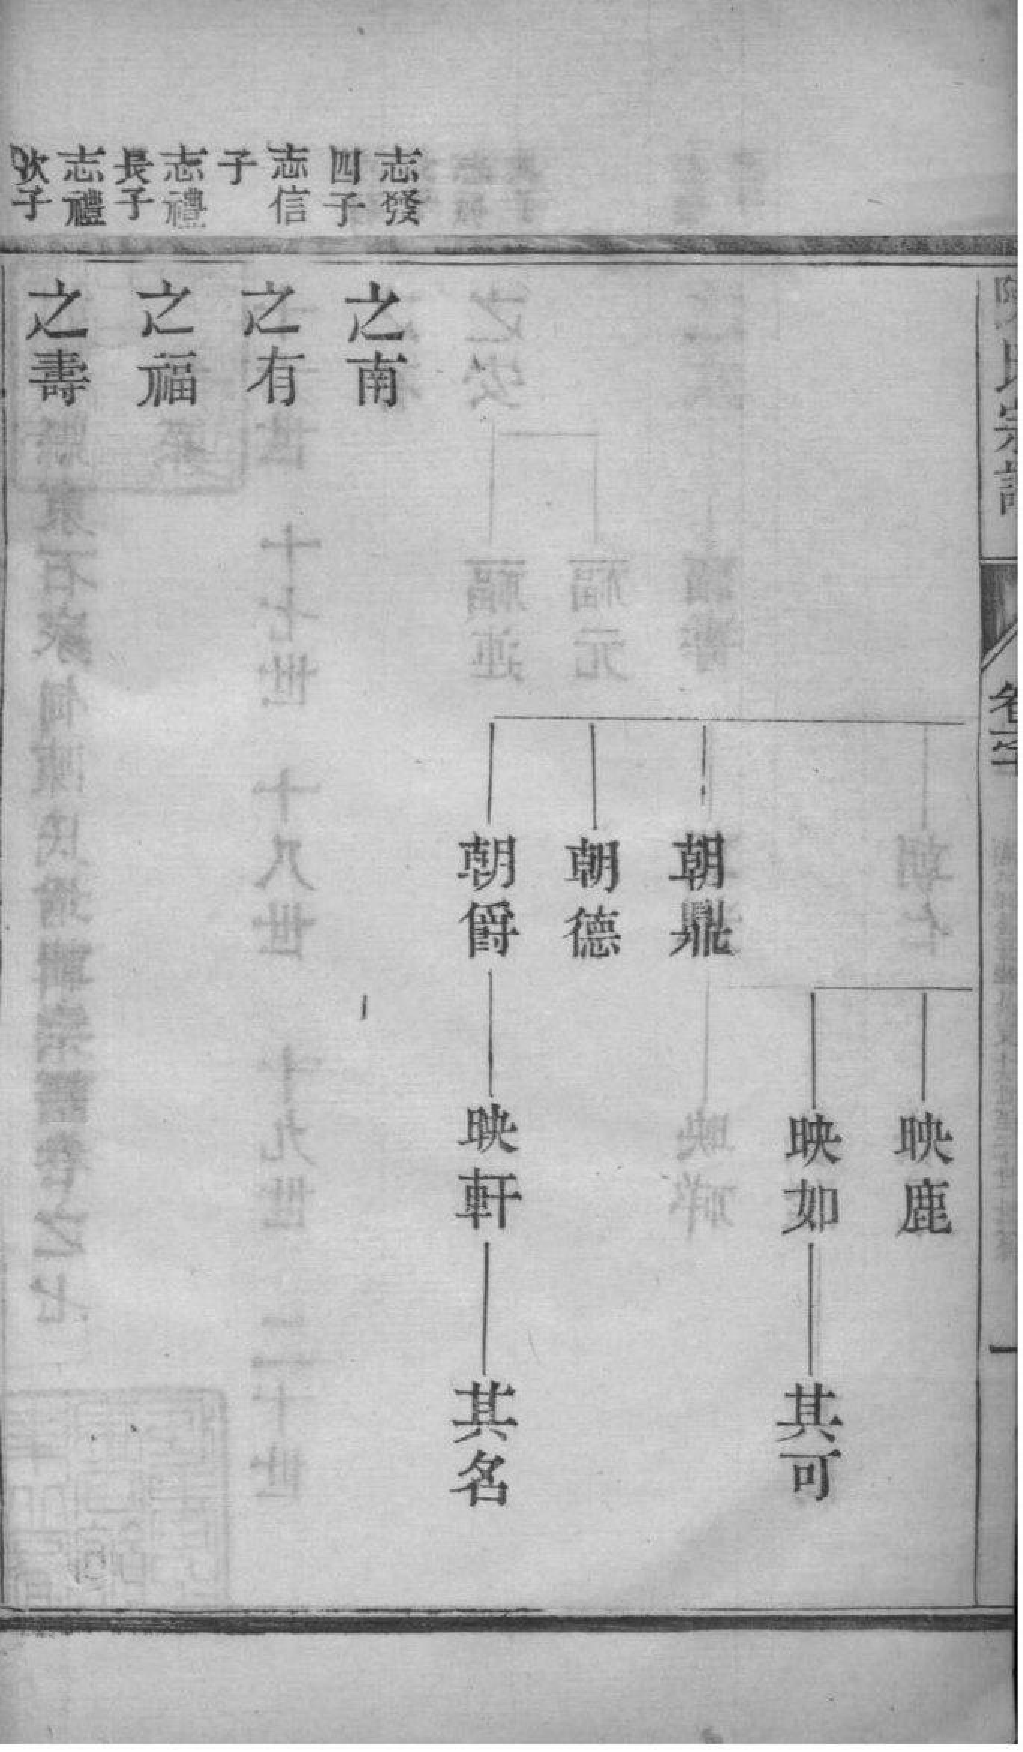 陳氏宗譜
卷之七
一
映鹿
映如
其可
朝鼎
朝德
朝爵
映軒
其名
志發
四子
之南
志信
子
之有
志禮
長子
之福
志禮
次子
之壽